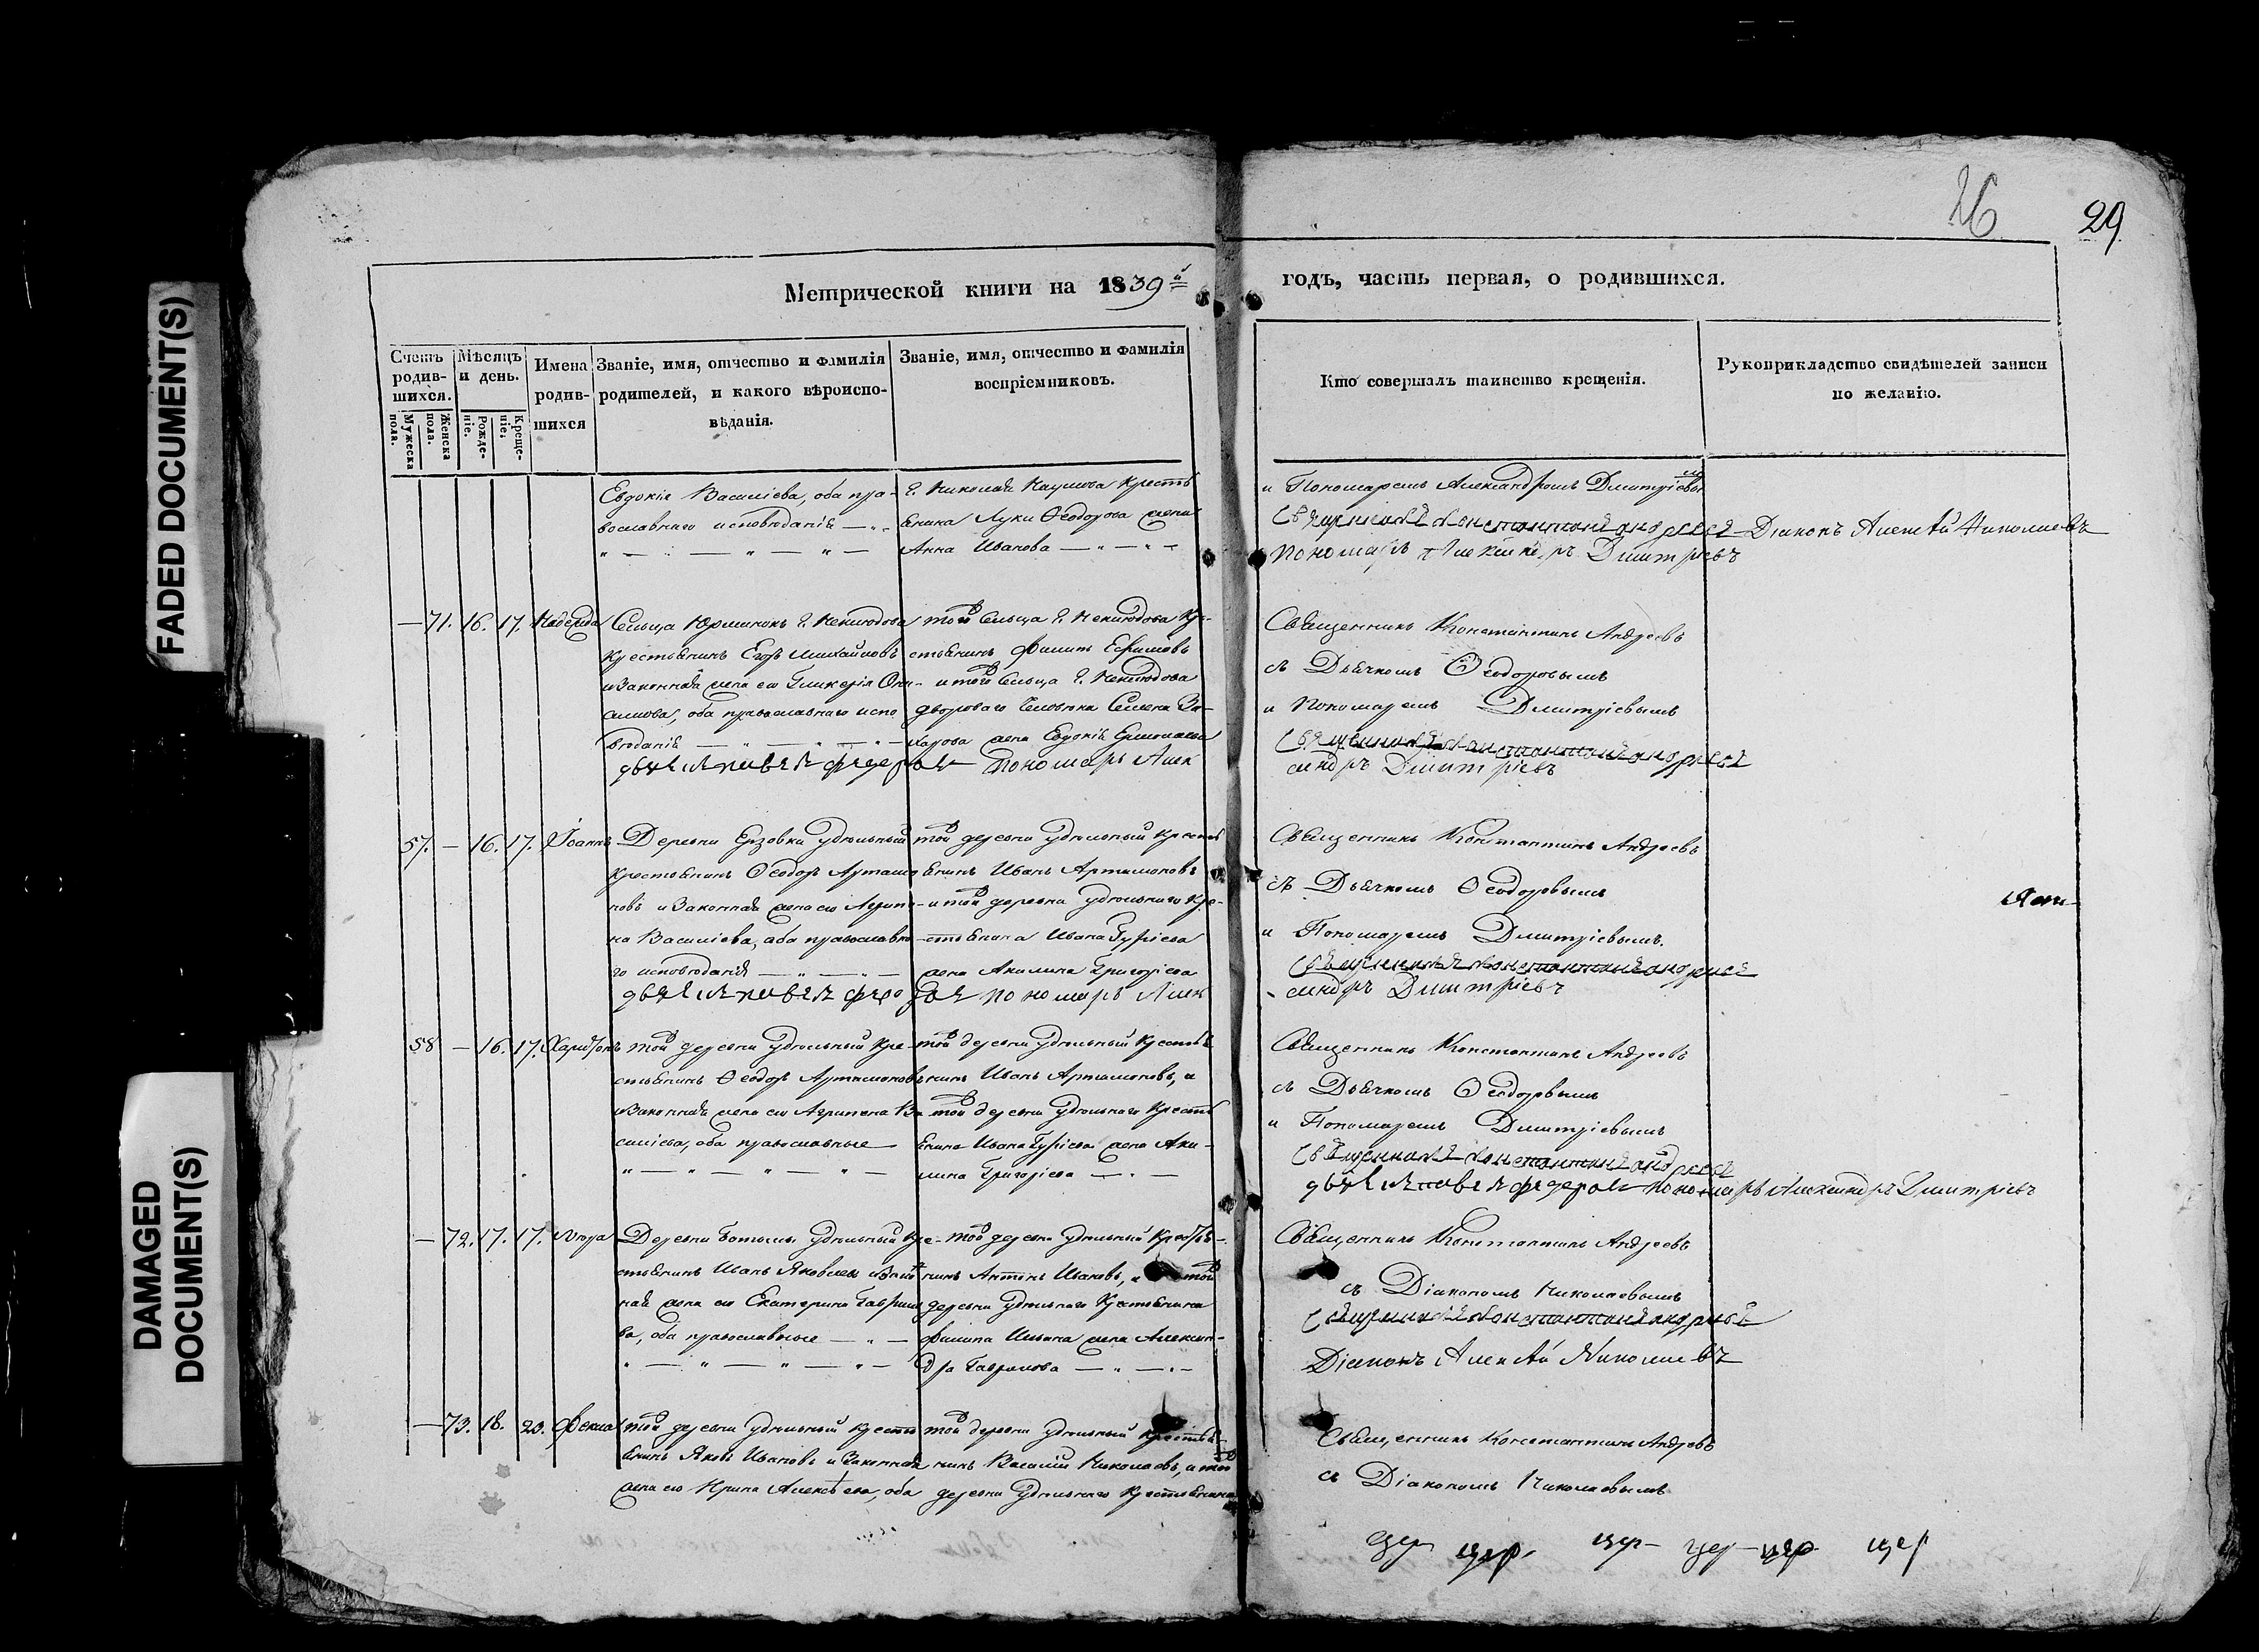 FADED DOCUMENT(S)
DAMAGED
DOCUMENT(S)
26
29
Метрической книги на 1839й
годъ, часть первая, о родившихся.
Счетъ родив-шихся.
Мужеска пола.
Женска пола.
Мѣсяцъ и день.
Рожде-ніе.
Креще-ніе.
Имена родив-шихся
Званіе, имя, отчество и фамилія
родителей, и какого вѣроиспо-
вѣданія.
Званіе, имя, отчество и фамилія
воспріемниковъ.
Кто совершалъ таинство крещенія.
Рукоприкладство свидѣтелей записи
по желанію.
Евдокія Василіева, оба пра-
вославнаго исповѣданія
Г. Николая Наумова Кресть
янина Луки Ѳеодорова жена
Анна Иванова
и Пономаремъ Александромъ Дмитріевы
Священникъ Константинъ Андреевъ Діаконъ Алексѣй Николаевъ
Пономарь Александръ Дмитріевъ
71. 16. 17. Надежда
Сельца Г. Неклюдова
Крестьянинъ Егоръ Михайловъ
и Законная жена его Гликерія Они-
симова, оба православнаго испо
вѣданія
той Сельца Г. Неклюдова Кре-
стьянинъ Филипъ Ефимовъ
и того Сельца Г. Неклюдова
двороваго Человѣка Семена За-
харова жена Евдокія Ермолаева
Священникъ Константинъ Андреевъ
съ Дьячкомъ Ѳеодоровымъ
и Пономаремъ Дмитріевымъ
Священникъ Константинъ Андреевъ
дьячекъ павелъ федоровъ Пономарь Алек
сандръ Дмитріевъ
57. — 16. 17. Іоаннъ
Деревни Ерзовки удѣльный
крестьянинъ Ѳеодоръ Артамо
новъ и Законная жена его Агрипе-
на Василіева, оба православна
го исповѣданія
той деревни удѣльный кресть
янинъ Иванъ Артамоновъ
и той деревни удѣльнаго Кре-
стьянина Ивана Гуріева
жена Акилина Григоріева
Священникъ Константинъ Андреевъ
съ Дьячкомъ Ѳеодоровымъ
и Пономаремъ Дмитріевымъ.
Священникъ Константинъ Андреевъ
дьячекъ павелъ федоровъ пономарь Алек
сандръ Дмитріевъ
58 — 16. 17. Харитонъ
той деревни удѣльный Кре-
стьянинъ Ѳеодоръ Артамоновъ
и Законная жена его Агрипена Ва
силіева, оба православные
той деревни удѣльный Кресть
янинъ Иванъ Артамоновъ, и
той деревни удѣльнаго Кресть
янина Ивана Гуріева жена Аки-
лина Григоріева
Священникъ Константинъ Андреевъ
съ Дьячкомъ Ѳеодоровымъ
и Пономаремъ Дмитріевымъ
Священникъ Константинъ Андреевъ
дьячекъ павелъ федоровъ пономарь Александръ Дмитріевъ
— 72. 17. 17.
Деревни удѣльный Кре-
стьянинъ Иванъ Яковлевъ и Закон
ная жена его Екатерина Гаврило
ва, оба православные
той деревни удѣльный Крестья-
нинъ Антонъ Ивановъ, и той
деревни удѣльнаго Крестьянина
Филипа жена Алексан-
дра Гаврилова
Священникъ Константинъ Андреевъ
съ Діакономъ Николаевымъ
Священникъ Константинъ Андреевъ
Діаконъ Алексѣй Николаевъ
— 73. 18. 20. Ѳекла
той деревни удѣльный кресть
янинъ Яковъ Ивановъ и Законная
жена его Ирина Алексѣева, оба
той деревни удѣльный крестья-
нинъ Василій Николаевъ, и той
деревни удѣльнаго Крестьянина
Священникъ Константинъ Андреевъ
съ Діакономъ Николаевымъ